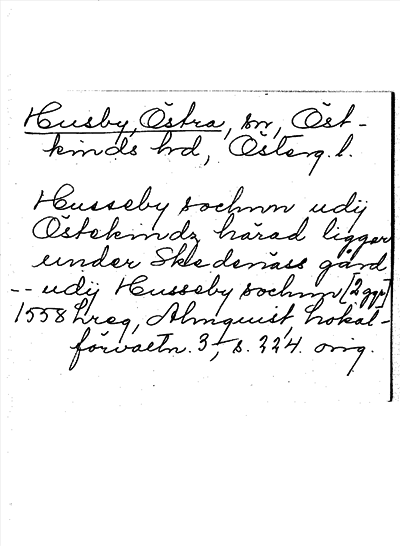 Husby, Östra, sn, Öst-
kinds hd, Österg. l.
Husseby sochnn udij
Östekindz härad ligger
under Skedenäss gård
-- udij Husseby sochnn [2 ggr]
1558 hreg, Almquist, Lokal-
förvaltn. 3, s. 224. orig.